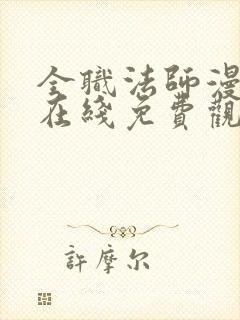 全職法師漫
在綫免費觀
許摩尔